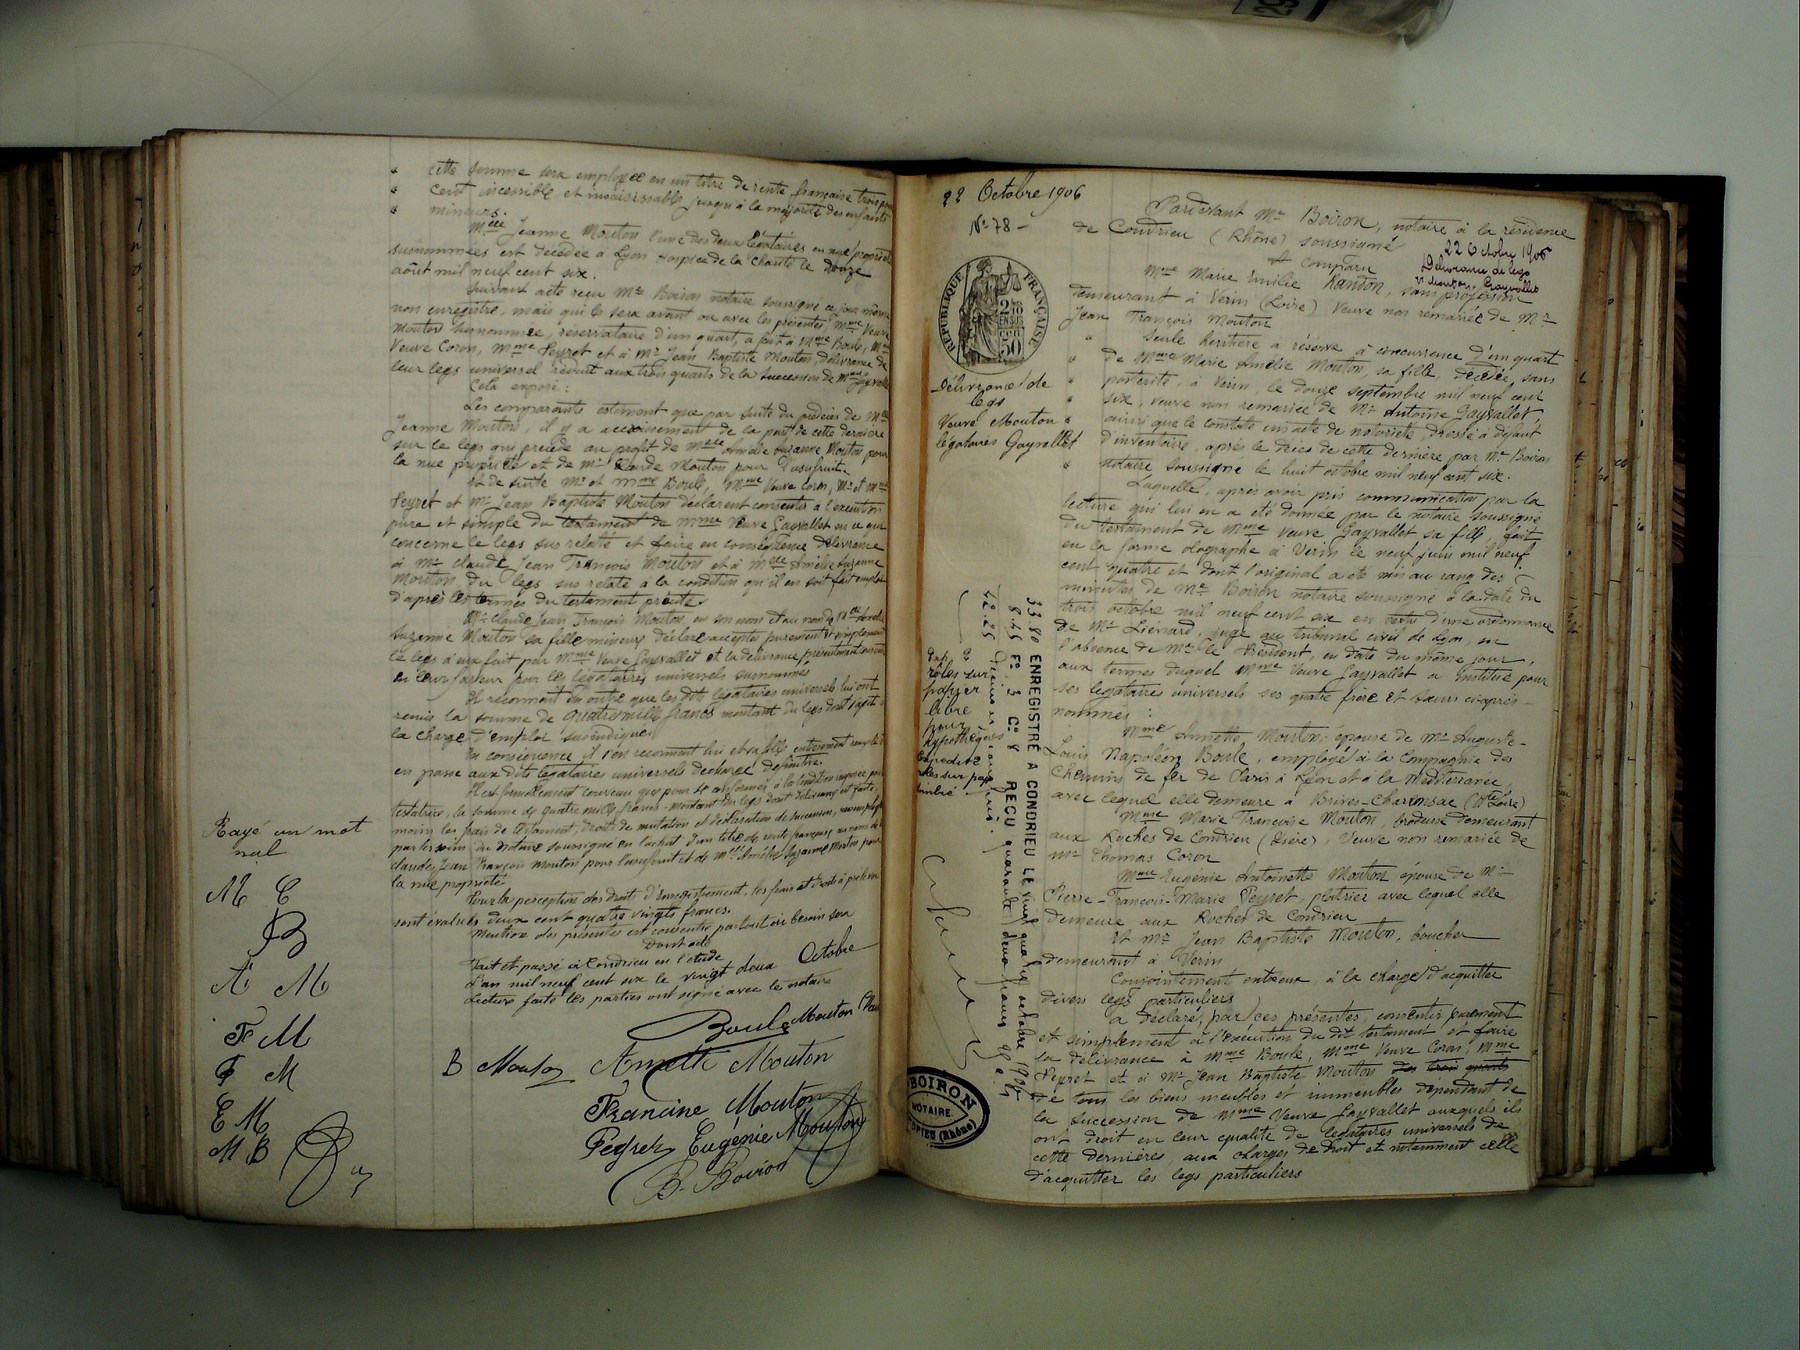 cette somme sera employée en un titre de rente française trois pour
cent incessible et insaisissable jusqu'à la majorité des enfants
mineurs.
Melle Jeanne Mouton l'une des deux légataires en nue propriété
susnommées est décédée à Lyon hospice de la Charité le douze
août mil neuf cent six.
Suivant acte reçu Me Boiron notaire soussigné ce jour même
non enregistré, mais qui le sera avant ou avec les présentes, Mme Veuve
Mouton susnommée, réservataire d'un quart, a fait à Mme Boule, Mme
Veuve Coron, Mme Peyret et à Mr Jean Baptiste Mouton, délivrance de
leur legs universel réduit aux trois quarts de la succession de Mme Gayvallet
Cela exposé :
Les comparants estiment que par suite du prédécès de Melle
Jeanne Mouton, il y a accroissement de la part de cette dernière
sur le legs qui précède au profit de Melle Amélie Suzanne Mouton pour
la nue propriété et de Mr Claude Mouton pour l'usufruit.
Et de suite Mr et Mme Boule, Mme Veuve Coron, Mr et Mme
Peyret et Mr Jean Baptiste Mouton déclarent consentir à l'exécution
pure et simple du testament de Mme Veuve Gayvallet en ce qui
concerne le legs sus relaté et faire en conséquence délivrance
à Mr Claude Jean François Mouton et à Melle Amélie Suzanne
Mouton, du legs sus relaté à la condition qu'il en soit fait emploi
d'après les termes du testament précité.
Mr Claude Jean François Mouton, en son nom et au nom de Melle Amélie
Suzanne Mouton sa fille mineure déclare accepter purement et simplement
le legs à eux fait par Mme Veuve Gayvallet et la délivrance présentement consentie
en leur faveur par les légataires universels susnommés
Il reconnaît en outre que les dits légataires universels lui ont
remis la somme de quatre mille francs montant du legs dont s'agit à
la charge d'emploi susindiqué.
En conséquence il s'en reconnaît lui et sa fille entièrement remplis et
en passe aux dits légataires universels décharge définitive.
Il est formellement convenu que pour se conformer à la condition imposée par la
testatrice, la somme de quatre mille francs - montant du legs dont délivrance est faite,
moins les frais de testament, droits de mutation et déclaration de succession,
par les soins du notaire soussigné en l'achat d'un titre de rente française au nom de Mr
Claude Jean François Mouton pour l'usufruit et de Melle Amélie Suzanne Mouton pour
la nue propriété
Pour la perception des droits d'enregistrement, les frais et droits à prélever
sont évalués deux cent quatre vingts francs.
Mention des présentes est consentie partout où besoin sera
Dont acte
Fait et passé à Condrieu en l'étude
L'an mil neuf cent six le vingt deux Octobre
Lecture faite les parties ont signé avec le notaire
Boule Mouton
B Mouton Annette Mouton
Francine Mouton
Peyret Eugénie Mouton
B. Boiron
Rayé un mot
nul
M C
B
A M
F M
M
E M
M B
22 Octobre 1906
N° 78 -
RÉPUBLIQUE FRANÇAISE
Délivrance de
legs
Veuve Mouton
légataires Gayvallet
rôles sur
papier
libre
pour
hypothèques
33.80 ENREGISTRÉ A CONDRIEU LE vingt quatre octobre 1906
8.45 F° 3 C° 8 REÇU quarante deux francs 25 c
42.25 décimes compris.
BOIRON
NOTAIRE
Pardevant Me Boiron, notaire à la résidence
de Condrieu (Rhône) soussigné
A comparu
22 Octobre 1906
Délivrance de legs
Ve Mouton Gayvallet
Mme Marie Emilie Randon, sans profession
demeurant à Verin (Loire) Veuve non remariée de Mr
Jean François Mouton
Seule héritière à réserve à concurrence d'un quart
de Mme Marie Amélie Mouton, sa fille, décédée, sans
postérité, à Verin, le douze septembre mil neuf cent
six, veuve non remariée de Mr Antoine Gayvallet,
ainsi que le constate un acte de notoriété, dressé à défaut
d'inventaire, après le décès de cette dernière par Me Boiron
notaire soussigné le huit octobre mil neuf cent six.
Laquelle, après avoir pris communication par la
lecture qui lui en a été donnée par le notaire soussigné
du testament de Mme Veuve Gayvallet sa fille, fait
en la forme olographe à Verin le neuf juin mil neuf
cent quatre et dont l'original a été mis au rang des
minutes de Me Boiron notaire soussigné à la date du
trois octobre mil neuf cent six en vertu d'une ordonnance
de Mr Liénard, juge au tribunal civil de Lyon, en
l'absence de Mr le Président, en date du même jour,
aux termes duquel Mme Veuve Gayvallet a institué pour
ses légataires universels ses quatre frère et sœurs ci-après-
nommés :
Mme Annette Mouton, épouse de Mr Auguste-
Louis Napoléon Boule, employé à la Compagnie des
Chemins de fer de Paris à Lyon et à la Méditerranée
avec lequel elle demeure à Brives-Charensac (Hte Loire)
Mme Marie Françoise Mouton, brodeuse demeurant
aux Roches de Condrieu (Isère), Veuve non remariée de
Mr Thomas Coron
Mme Eugénie Antoinette Mouton épouse de Mr
Pierre-François-Marie Peyret, plâtrier avec lequel elle
demeure aux Roches de Condrieu
Et Mr Jean Baptiste Mouton, boucher
demeurant à Verin
Conjointement entr'eux, à la charge d'acquitter
divers legs particuliers
A déclaré, par ces présentes, consentir purement
et simplement à l'exécution du dit testament et faire
la délivrance à Mme Boule, Mme Veuve Coron, Mme
Peyret et à Mr Jean Baptiste Mouton des trois quarts
de tous les biens meubles et immeubles dépendant de
la succession de Mme Veuve Gayvallet auxquels ils
ont droit en leur qualité de légataires universels de
cette dernière, aux charges de droit et notamment celle
d'acquitter les legs particuliers